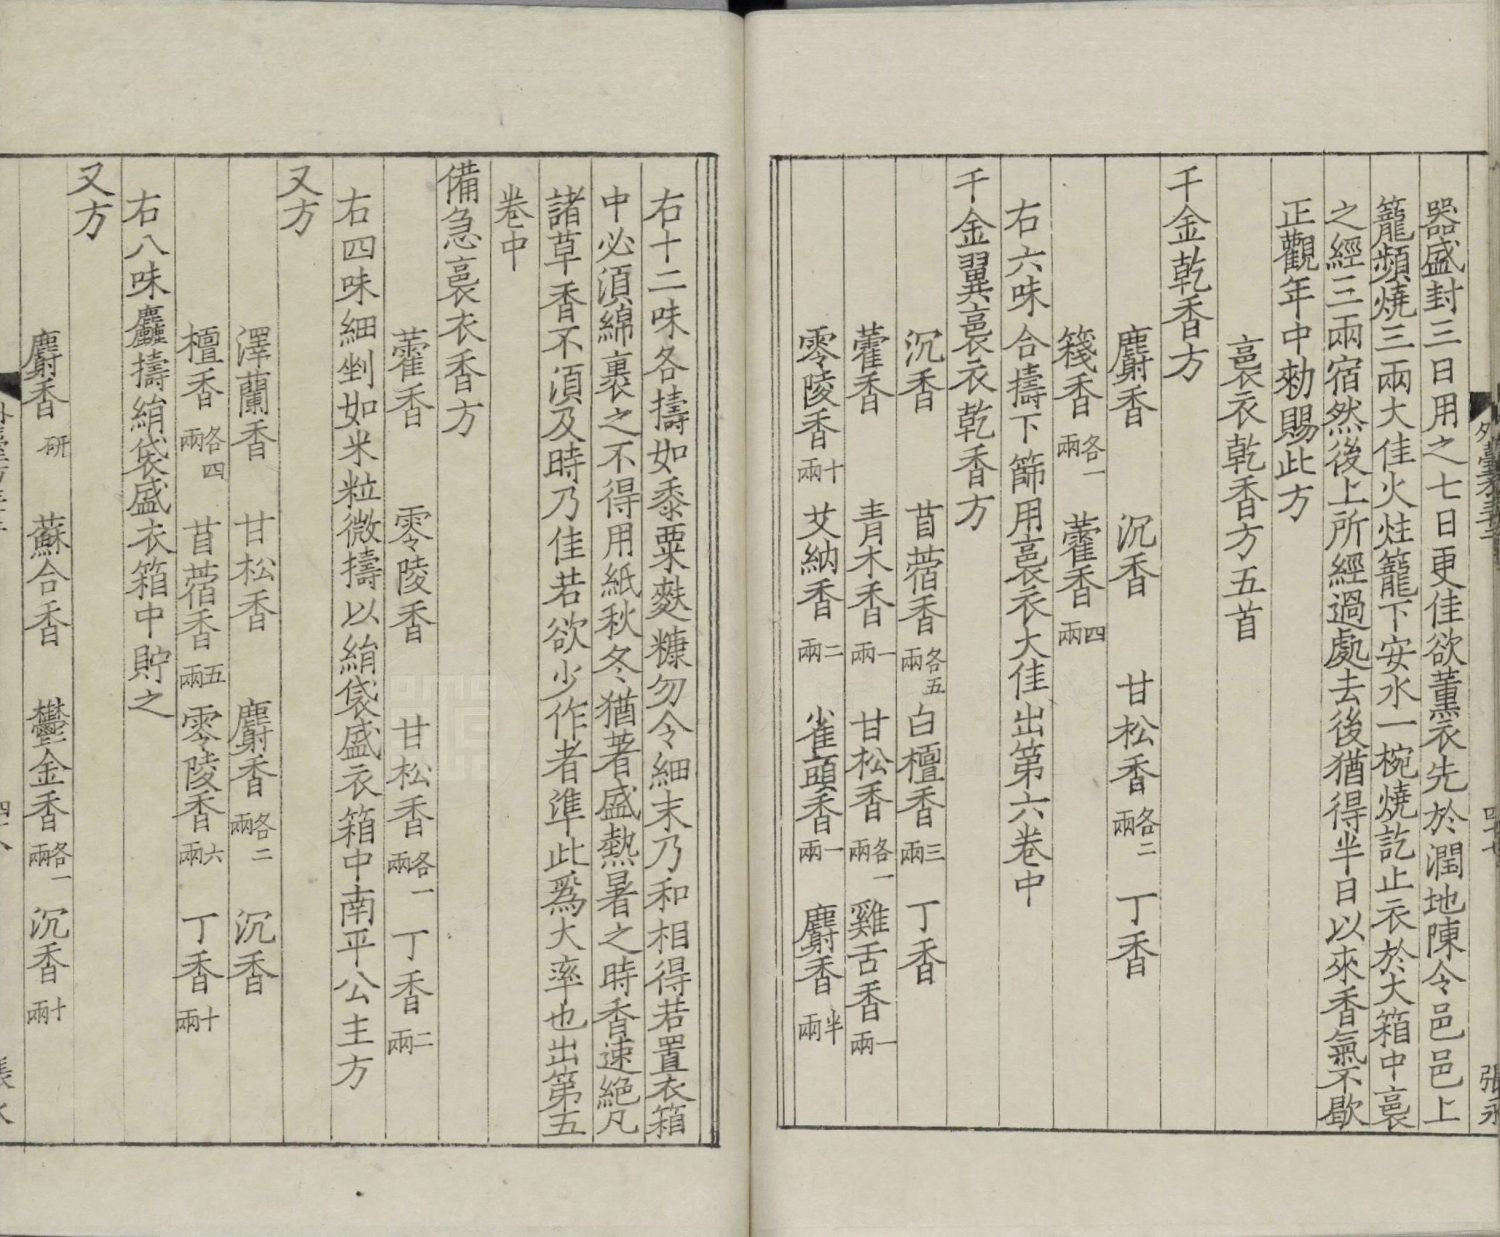 器盛封三日用之七日更佳欲薰衣先於潤地陳令邑邑上
籠頻燒三兩大佳火炷籠下安水一椀燒訖止衣於大箱中裛
之經三兩宿然後上所經過處去後猶得半日以來香氣不歇
正觀年中勑賜此方
裛衣乾香方五首
千金乾香方
麝香 沉香 甘松香各二兩 丁香
篯香各一兩 藿香四兩
右六味合擣下篩用裛衣大佳出第六卷中
千金翼裛衣乾香方
沉香 苜蓿香各五兩 白檀香三兩 丁香
藿香 青木香一兩 甘松香各一兩 雞舌香一兩
零陵香十兩 艾納香二兩 雀頭香一兩 麝香半兩
右十二味各擣如黍粟麩糠勿令細末乃和相得若置衣箱
中必須綿裹之不得用紙秋冬猶著盛熱暑之時香速絕凡
諸草香不須及時乃佳若欲少作者準此為大率也出第五
卷中
備急裛衣香方
藿香 零陵香 甘松香各一兩 丁香二兩
右四味細剉如米粒微擣以絹袋盛衣箱中南平公主方
又方
澤蘭香 甘松香 麝香各二兩 沉香
檀香各四兩 苜蓿香五兩 零陵香六兩 丁香十兩
右八味麤擣絹袋盛衣箱中貯之
又方
麝香研 蘇合香 鬱金香各一兩 沉香十兩